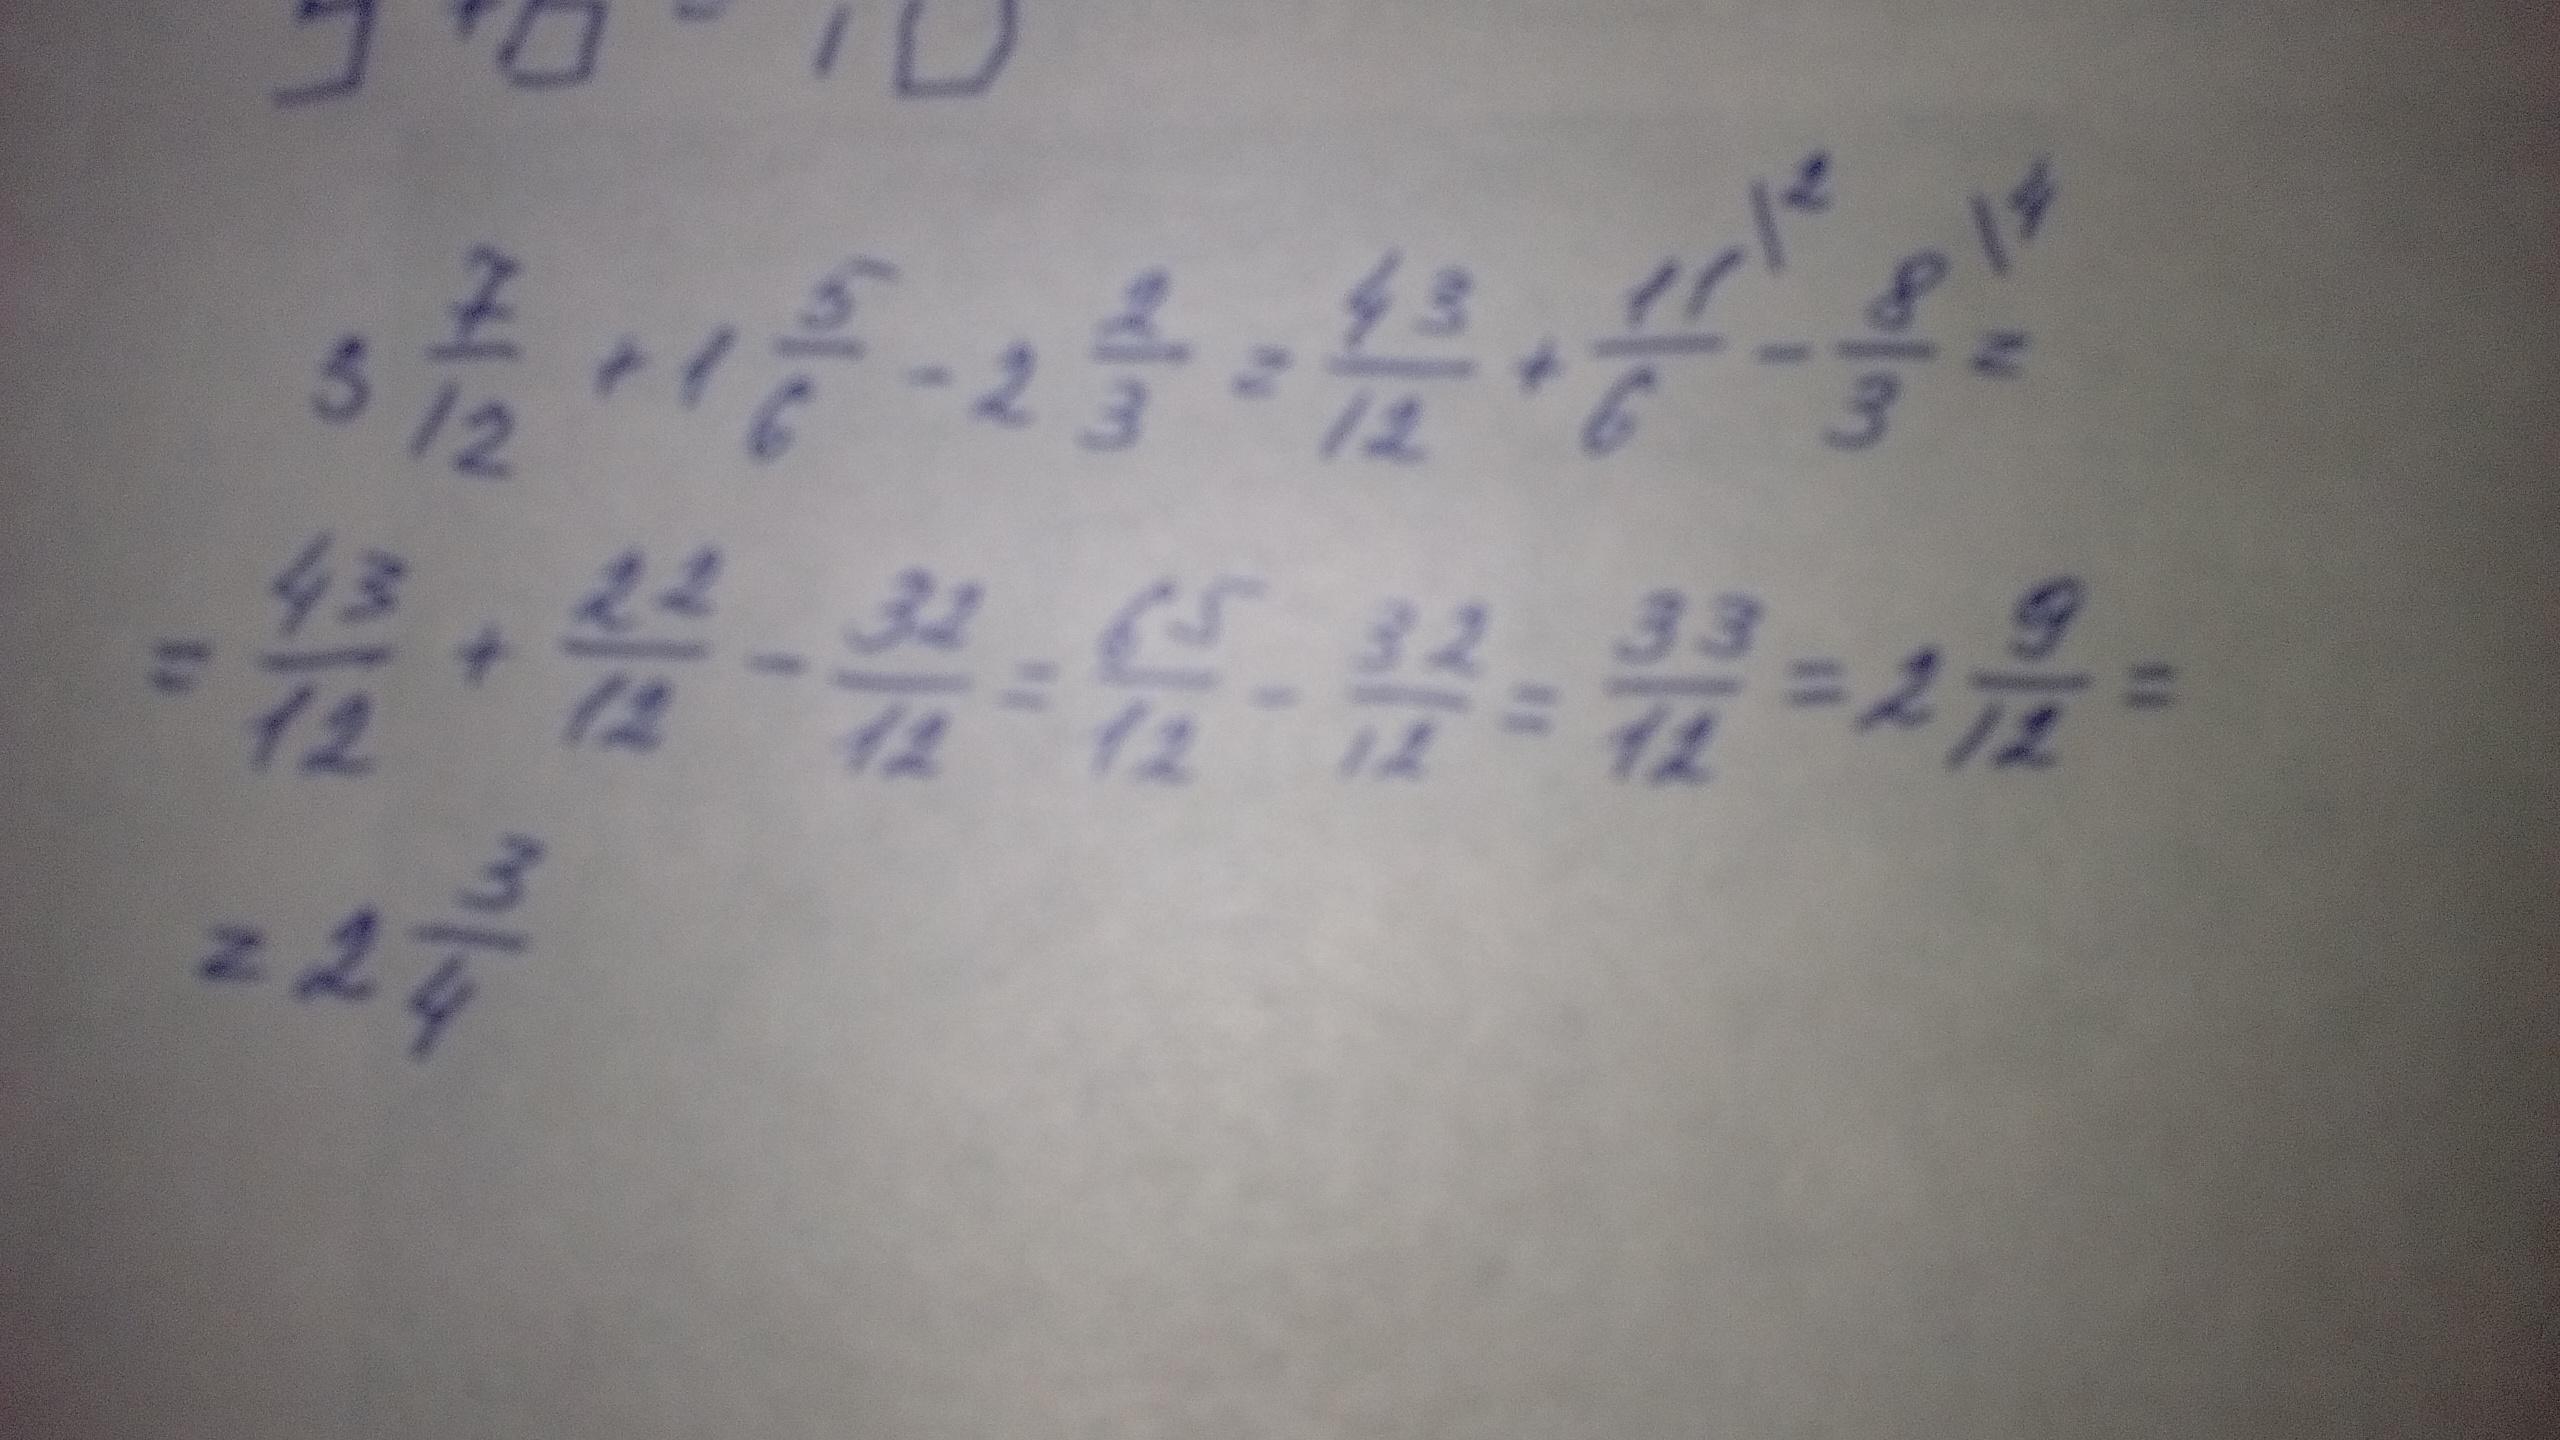 3 7/12 + 1 5/6 - 2 2/3 = 43/12 + 11/6 \2 - 8/3 \4 =
= 43/12 + 22/12 - 32/12 = 65/12 - 32/12 = 33/12 = 2 9/12 =
= 2 3/4